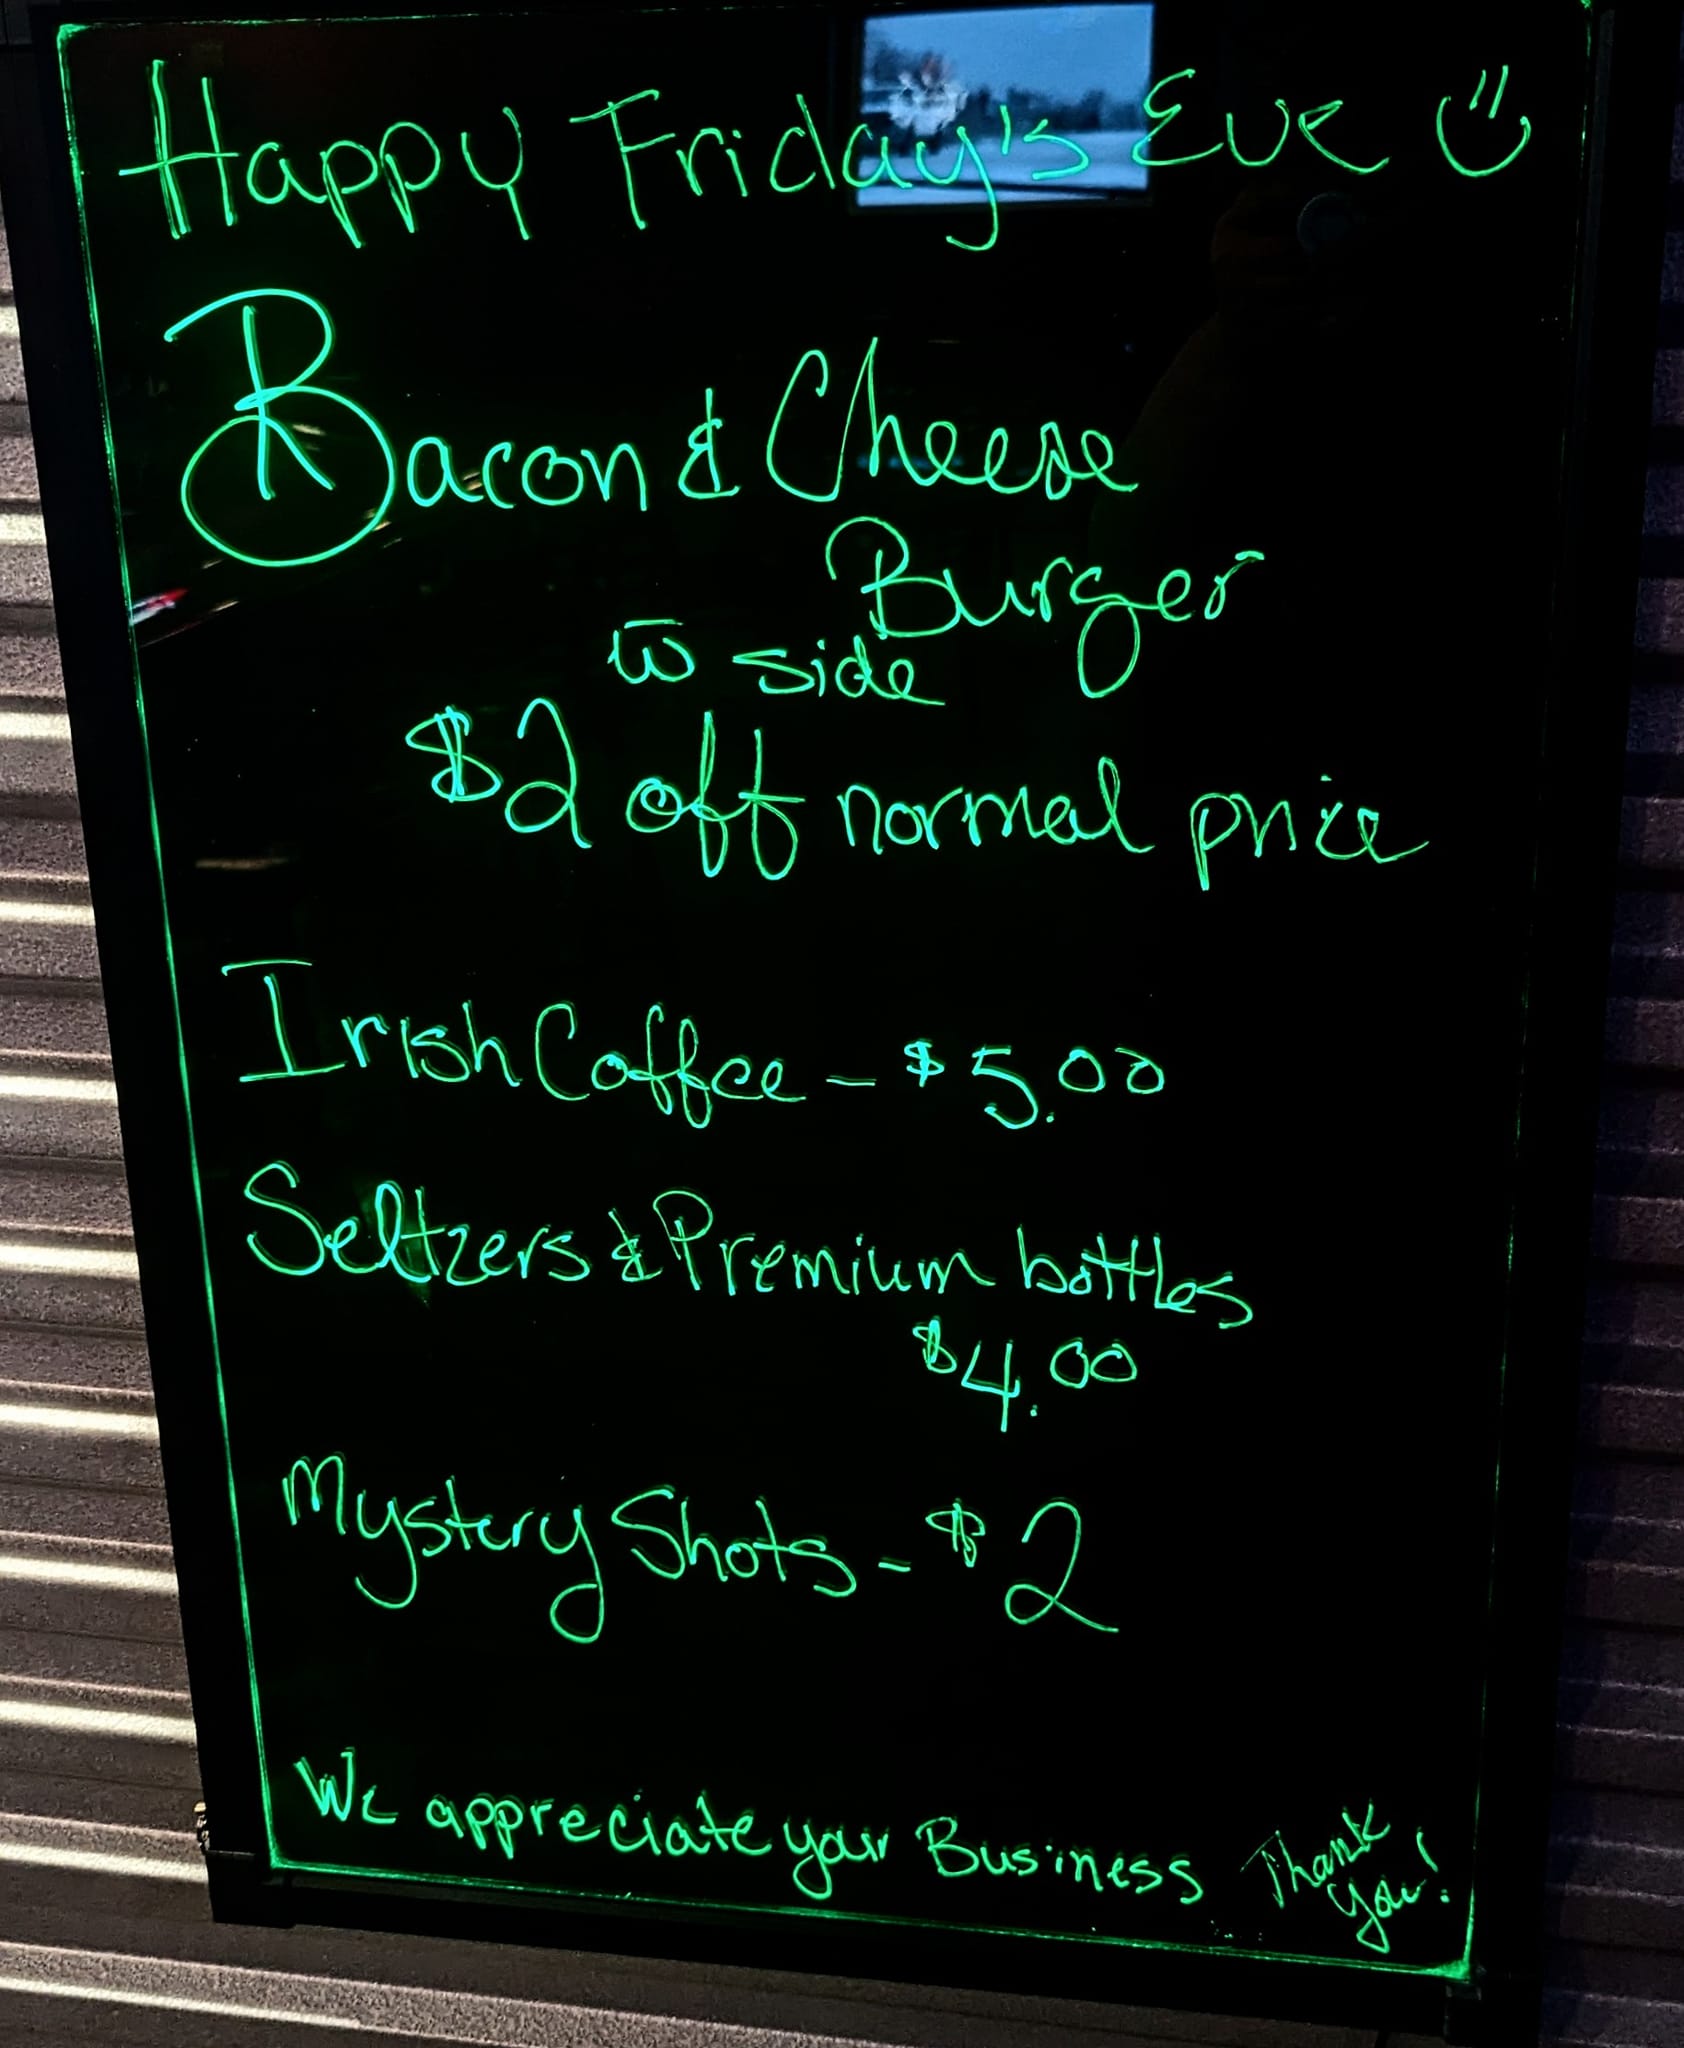 Happy Friday's Eve
Bacon & Cheese
Burger
w̅ side
$2 off normal price
Irish Coffee - $5.00
Seltzers & Premium bottles
$4.00
Mystery Shots - $2
We appreciate your Business Thank
you!